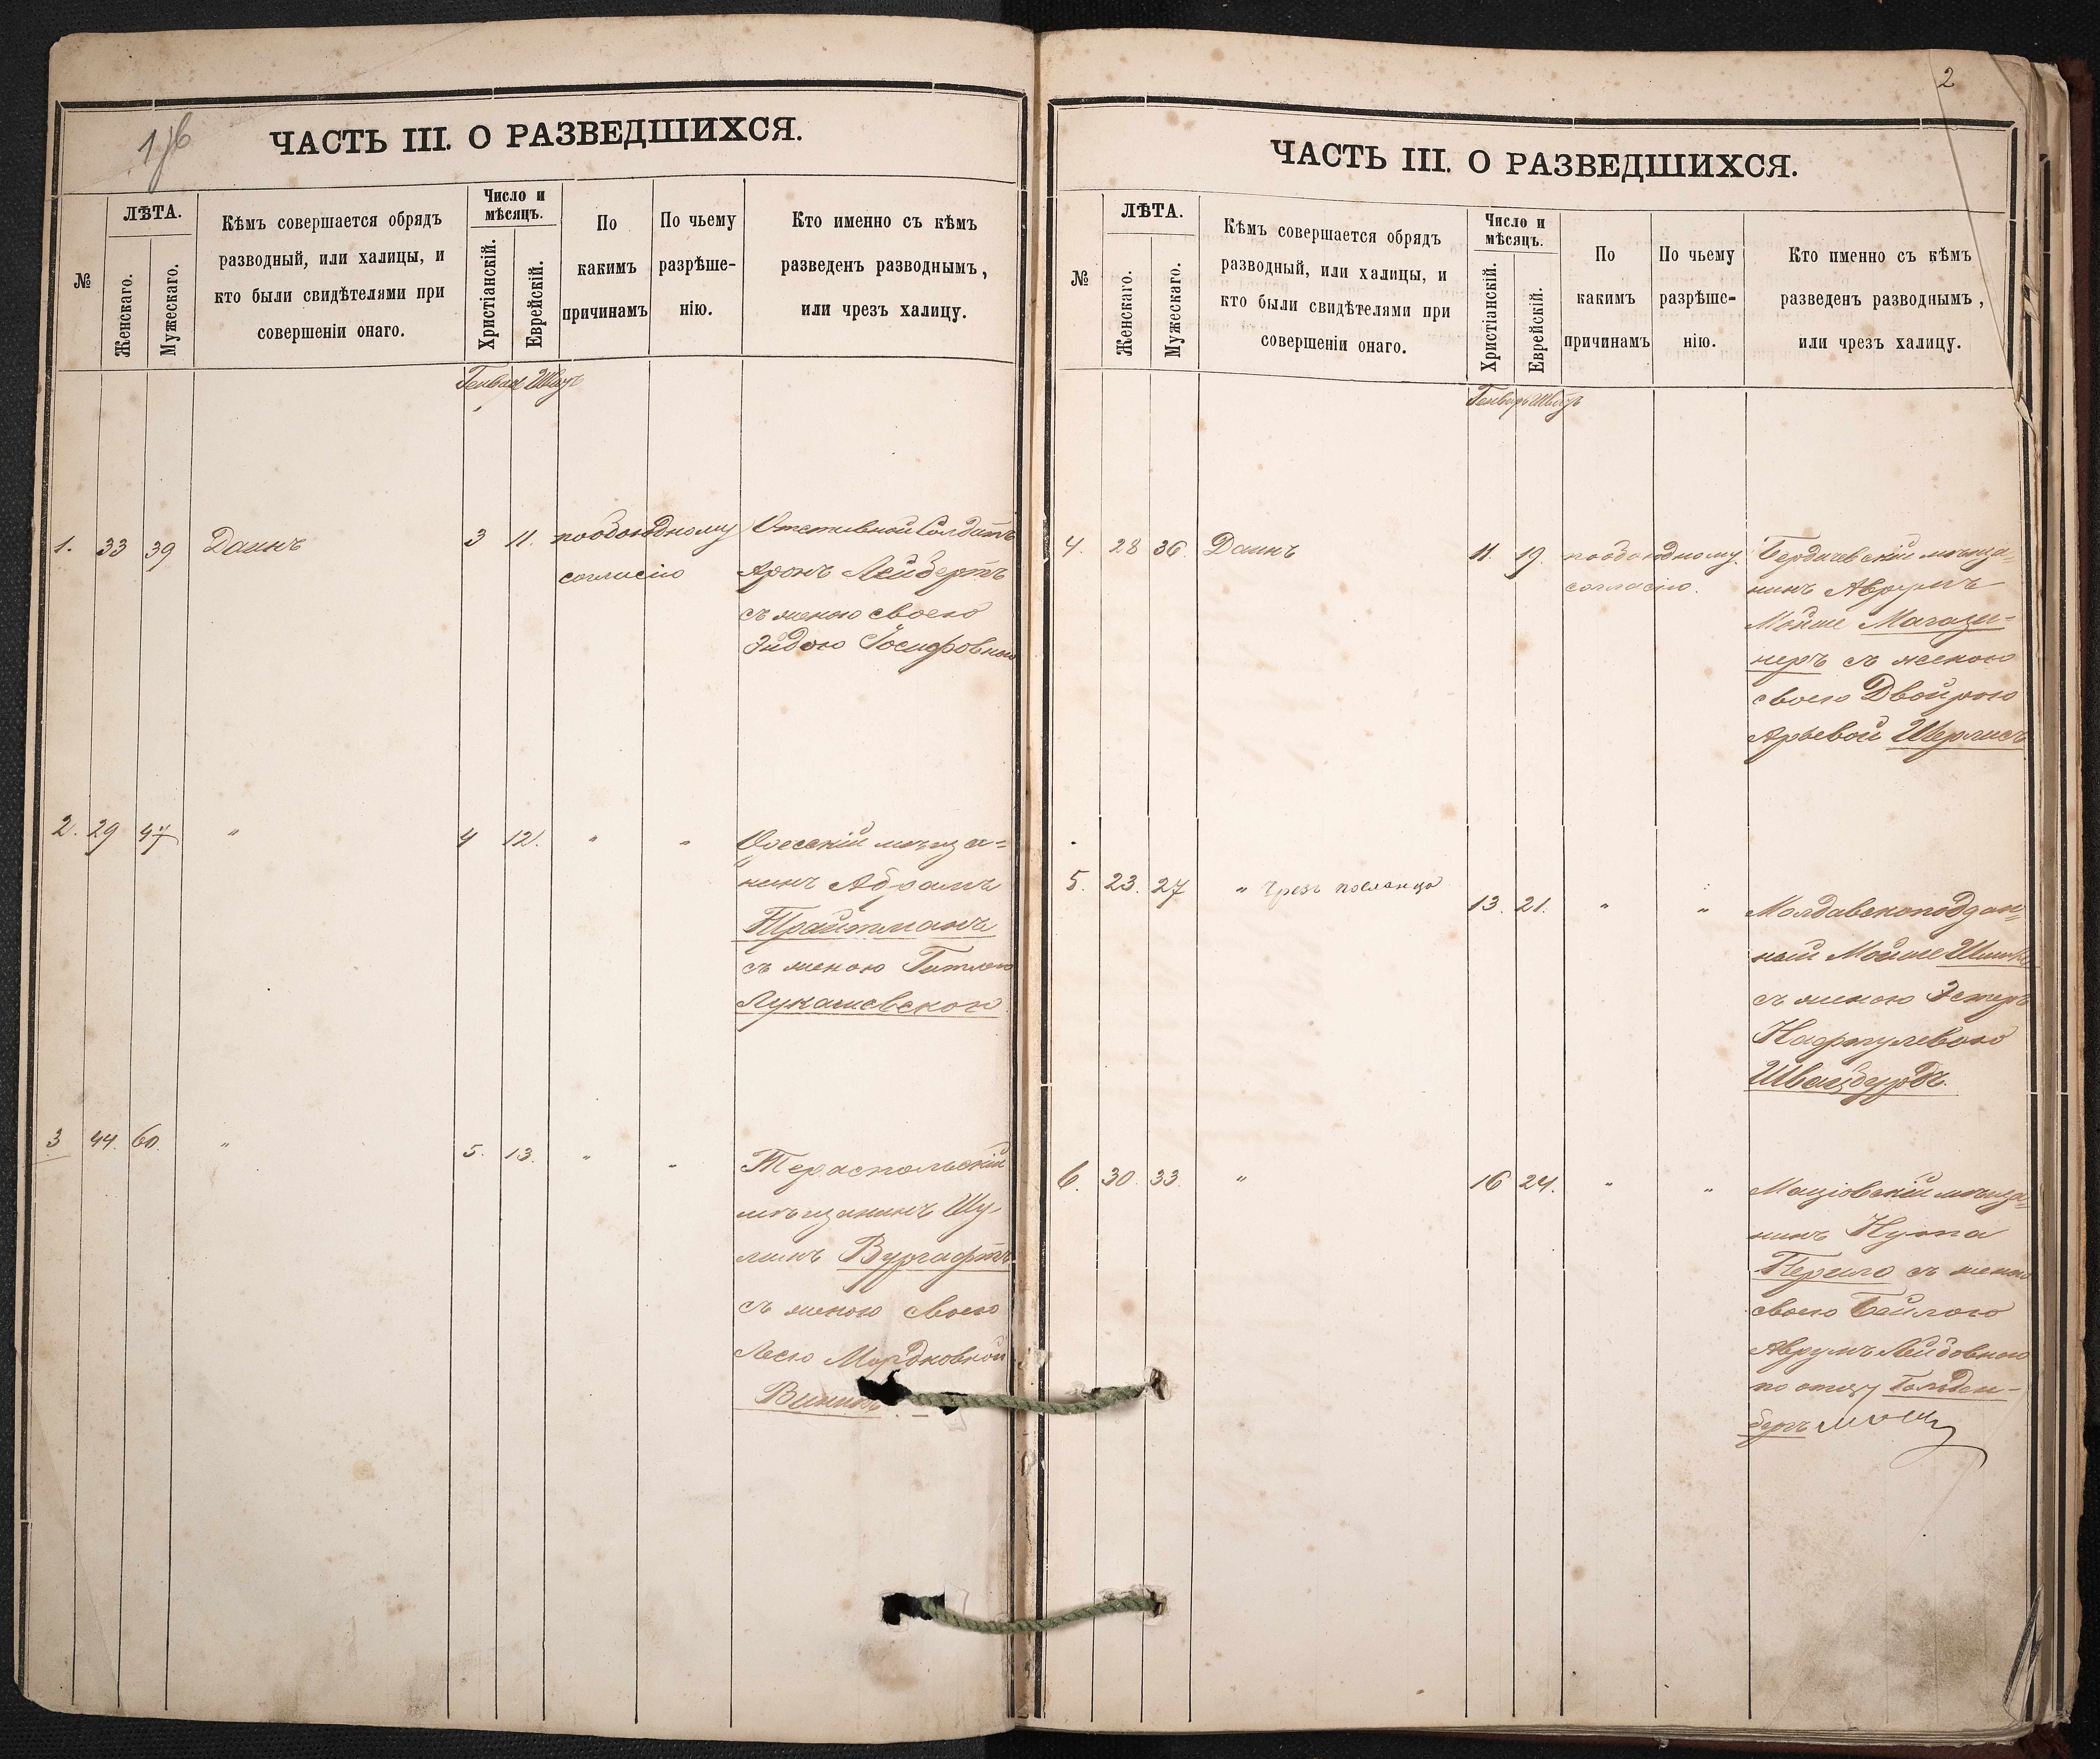 ЧАСТЬ III. О РАЗВЕДШИХСЯ.
№
ЛѢТА.
Женскаго.
Мужескаго.
Кѣмъ совершается обрядъ
разводный, или халицы, и
кто были свидѣтелями при
совершеніи онаго.
Число и
мѣсяцъ.
Христіанскій.
Еврейскій.
По
какимъ
причинамъ
По чьему
разрѣше-
нію.
Кто именно съ кѣмъ
разведенъ разводнымъ,
или чрезъ халицу.
1. 33 39 Даинъ 3 11. пообоюдному Отставной Солдатъ
согласію Аронъ Лейбертъ
съ женою своею
Эйдою Іосифовною
2. 29 47 " 4 12. " " Одесскій мѣща=
нинъ Абрамъ
Трайтманъ
съ женою Гитлею
Лукашевскою
3 44. 60. " 5. 13. " " Тераспольскій
мѣщанинъ Шу-
лимъ Вургафтъ
съ женою своею
Лесею Мордковной
2
ЧАСТЬ III. О РАЗВЕДШИХСЯ.
№
ЛѢТА.
Женскаго.
Мужескаго.
Кѣмъ совершается обрядъ
разводный, или халицы, и
кто были свидѣтелями при
совершеніи онаго.
Число и
мѣсяцъ.
Христіанскій.
Еврейскій.
По
какимъ
причинамъ
По чьему
разрѣше-
нію.
Кто именно съ кѣмъ
разведенъ разводнымъ,
или чрезъ халицу.
4. 28 36. Даинъ 11. 19. пообоюдному. Бердичевскій мѣща=
согласію. нинъ Аврумъ
Мойше Магази=
неръ съ женою
своею Двойрою
Арьевой Шерлисъ
5. 23. 27 " Чрезъ посланца 13. 21. " " Молдавскоподдан=
ный Мойше
съ женою Эстеръ
Нафтулевою
Швайбурдъ.
6. 30. 33. " 16 24. " " Маціовскій мѣща=
нинъ Нута
Перило съ женою
своею Бейлою
Аврумъ Лейбовною
по отцу Гольден-
бергъ